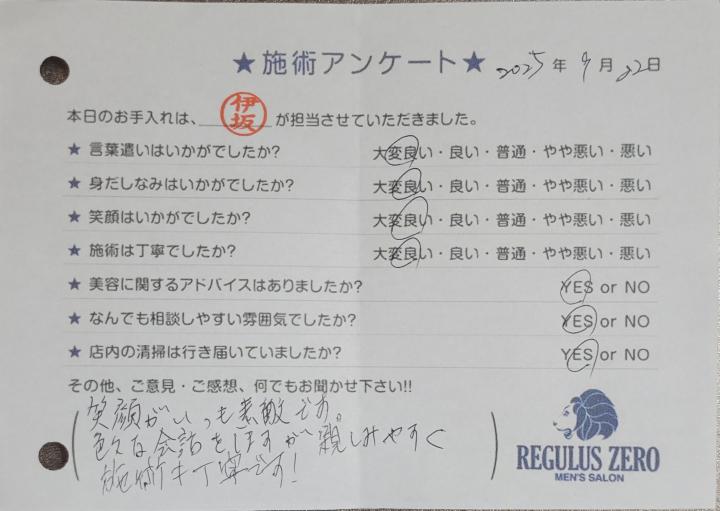 ★施術アンケート★ 2025年9月22日
本日のお手入れは、伊坂が担当させていただきました。
★ 言葉遣いはいかがでしたか? 大変良い・良い・普通・やや悪い・悪い
★ 身だしなみはいかがでしたか? 大変良い・良い・普通・やや悪い・悪い
★ 笑顔はいかがでしたか? 大変良い・良い・普通・やや悪い・悪い
★ 施術は丁寧でしたか? 大変良い・良い・普通・やや悪い・悪い
★ 美容に関するアドバイスはありましたか? YES or NO
★ なんでも相談しやすい雰囲気でしたか? YES or NO
★ 店内の清掃は行き届いていましたか? YES or NO
その他、ご意見・ご感想、何でもお聞かせ下さい!!
笑顔がいつも素敵です。
色々な会話をしますが親しみやすく
施術も丁寧です!
REGULUS ZERO
MEN'S SALON